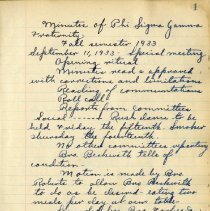 1
Minutes of Phi Sigma Gamma
Fraternity
Fall semester 1933
September 11, 1933 special meeting
Opening ritual
Minutes read & approved
with corrections and
Reading of communications
Roll call
Reports from committees
Social Rush dance to be
held Friday the fifteenth. Smoker
Thursday the fourteenth
No other committees reporting
Bro. Beckwith tells of
condition
Motion is made by Bro
Roberts to allow Bro. Beckwith
to do as he
meals per day at our table